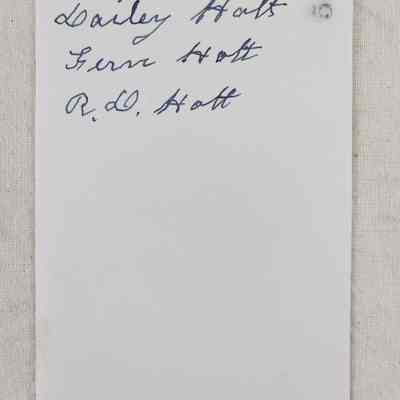 Dailey Hott
Fern Hott
R.D. Hott